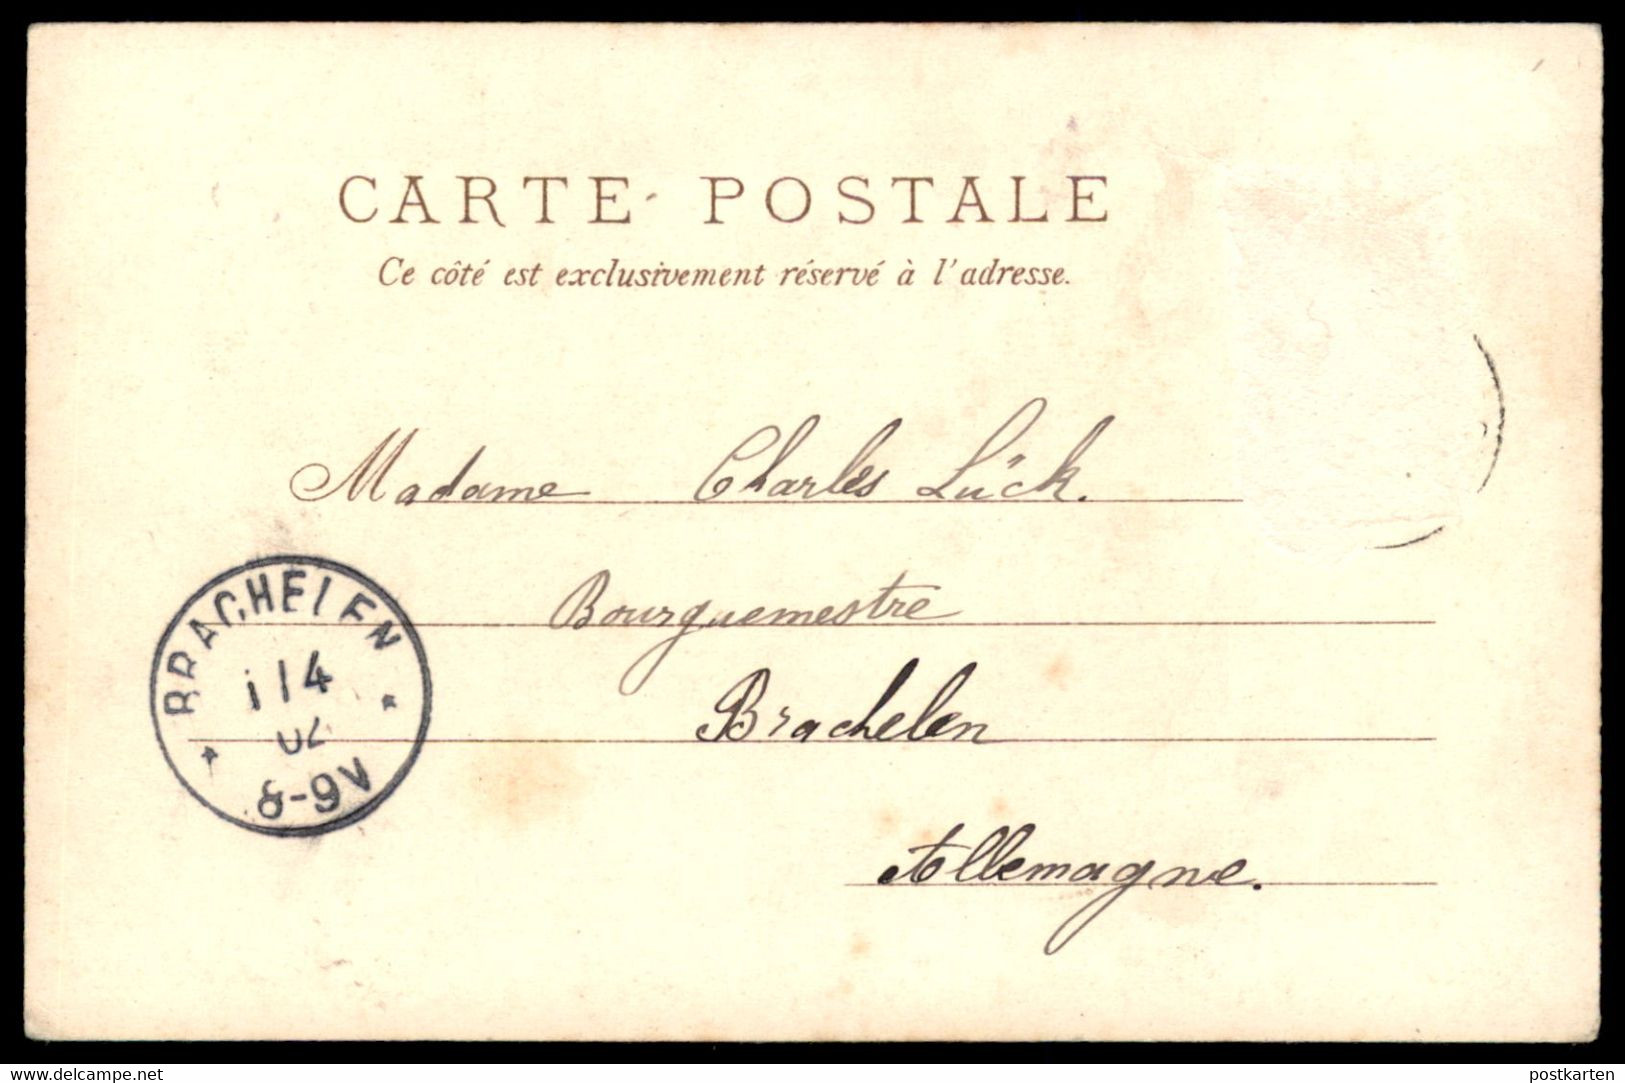 CARTE POSTALE
Ce côté est exclusivement réservé à l'adresse.
Madame Charles Lück.
Bourguemestre
Brachelen
Allemagne.
BRACHELEN
1 14
02
8-9V
www.delcampe.net
postkarten